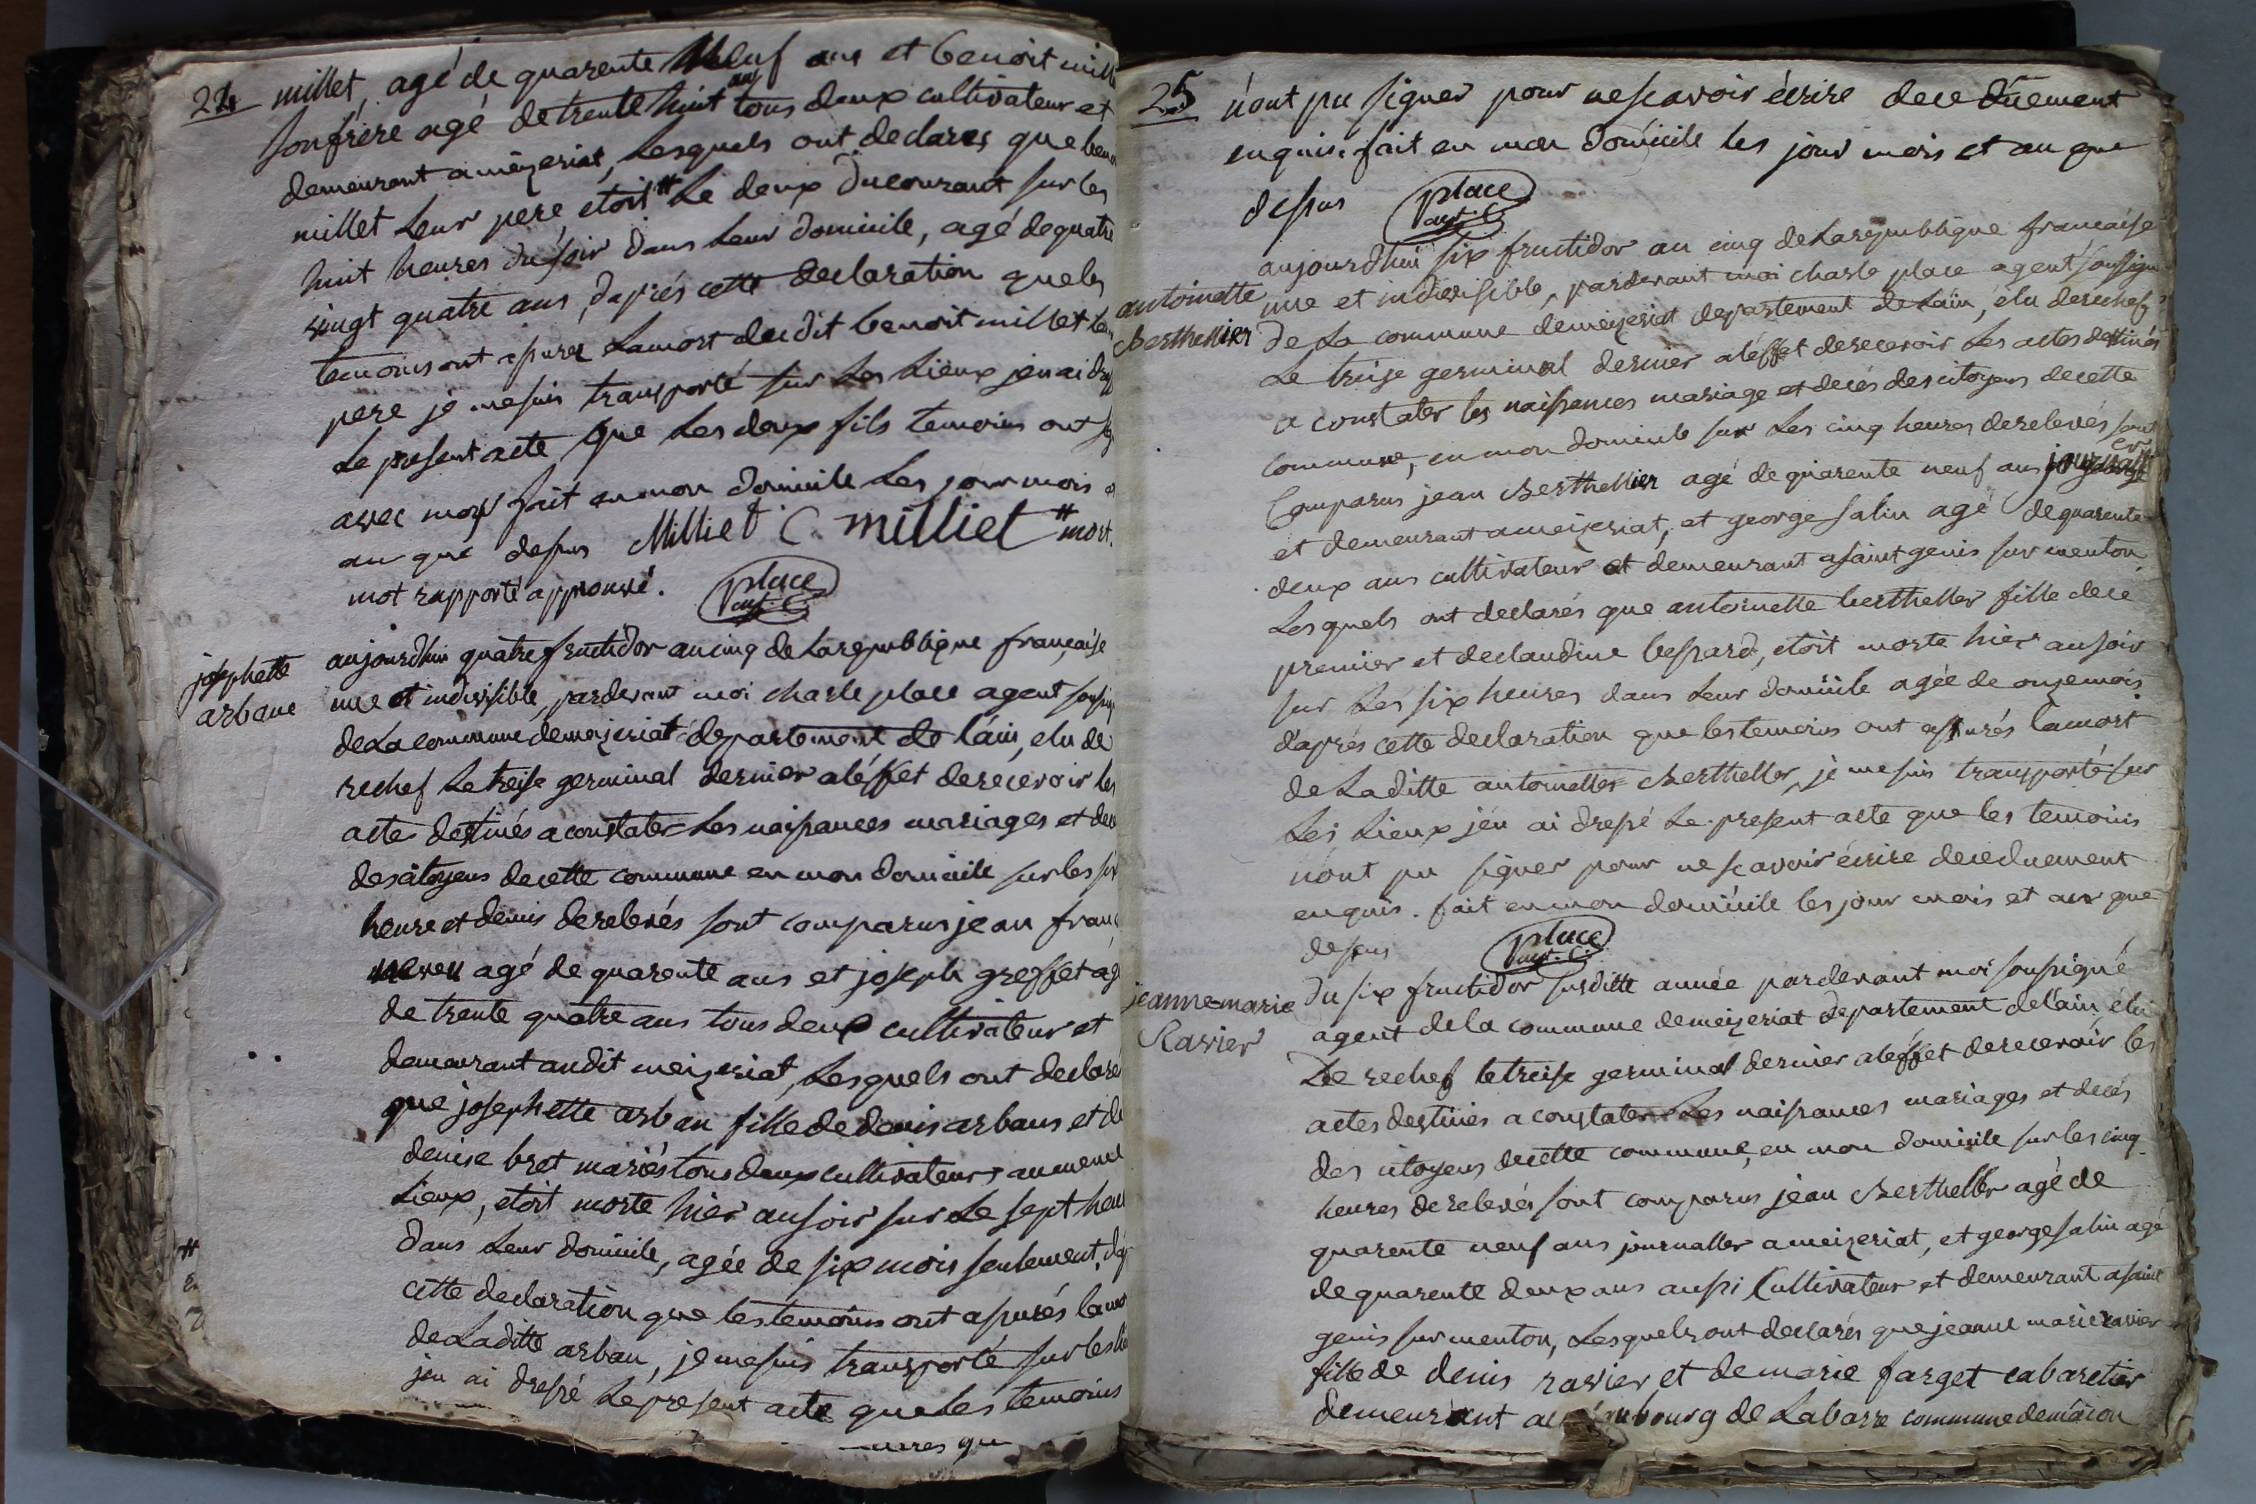 24 millet, agé de quarente Neuf ans et benoit mill
son frere agé de trente huit ans tous deux cultivateur et
demeurant a mèzeriat, Lesquels ont declares que benoi
millet Leur pere étoit # Le deux du courant sur les
huit heures du soir dans Leur domicile, agé de quatre
vingt quatre ans, d'aprés cette declaration que les
temoins ont assurez La mort du dit benoit millet leur
pere je me suis transporté sur Les Lieux jen ai dress
Le present acte que Les deux fils temoins ont sig
avec moy fait en mon domicile Les jour mois et
an que dessus Milliet C. milliet # mort.
mot rapporté approuvé. place agt. C.
josephette
arbane
aujourdhui quatre fructidor an cinq de La republique française
une et indivisible, pardevant moi charle place agent sousig
de La commune de meizeriat departement de L'áin, elu de
rechef Le treise germinal dernier a léffet de recevoir les
acte destinés a constater Les naissances mariages et dece
des citoyens de cette commune en mon domicile sur les six
heure et demis de relevés sont comparus jean franç
neveu agé de quarente ans et joseph greffet agé
de trente quatre ans tous deux cultivateur et
demeurant audit meizeriat, Lesquels ont declaré
que josephette arban fille de denis arbans et de
denise bret mariés tous deux cultivateurs au meme
Lieux, etoit morte hier au soir sur Le sept heur
dans Leur domicile, agée de six mois seulement, d'ap
cette declaration que les temoins ont assurés la mor
de La ditte arban, je me suis transporté sur les li
jen ai dressé Le present acte que Les temoins
25 n'ont pu signer pour ne scavoir écrire de ce düement
enquis. fait en mon domicile les jour mois et an que
dessus place agt. C.
antoinette
Berthellier
aujourdhui six fructidor an cinq de La republique francaise
une et indivisible, pardevant moi charle place agent soussign
de La commune de meizeriat departement de Láin, élu derechef
Le treise germinal dernier a léffet de recevoir Les actes destinés
a constater les naissances mariage et decés des citoyens de cette
commune, en mon domicile sur Les cinq heures de relevés sont
Comparus jean Berthellier agé de quarente neuf ans
et demeurant a meizeriat, et george salin agé de quarente
deux ans cultivateur et demeurant a saint genis sur menton,
Lesquels ont declarés que antoinette berthellier fille de ce
premier et de claudine bessard, etoit morte hier au soir
sur Les six heures dans Leur domicile agée de onze mois
d'aprés cette declaration que les temoins ont assurés la mort
de La ditte antoinette Berthellier, je me suis transporté sur
Les Lieux jén ai dressé Le present acte que les temoins
n'ont pu signer pour ne scavoir écrire de ce duement
enquis. fait en mon domicile les jour mois et an que
dessus place agt. C.
jeanne-marie
Ravier
Du six fructidor susditte année pardevant moi soussigné
agent de la commune de meizeriat departement de l'ain, élu
De rechef le treise germinal dernier a léffet de recevoir les
actes destinés a constater Les naissances mariages et decés
des citoyens de cette commune, en mon domicile sur les cinq
heures de relevés sont comparus jean Berthellier agé de
quarente neuf ans journallier a meizeriat, et george salin agé
de quarente deux ans aussi Cultivateur et demeurant a saint
genis sur menton, Lesquels ont declarés que jeanne marie ravier
fille de denis ravier et de marie farget cabaretier
demeurant au faubourg de La barre commune de mâcon